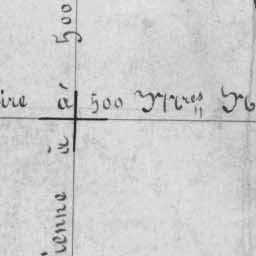 ire à 500 Mtres
500
ienne à